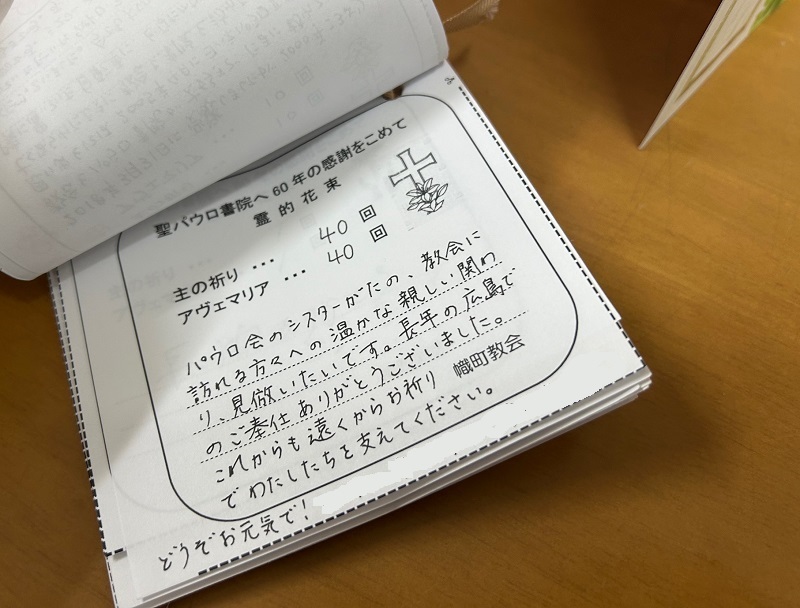 聖パウロ書院へ60年の感謝をこめて
霊的花束
主の祈り … 40 回
アヴェマリア … 40 回
パウロ会のシスターがたの、教会に
訪れる方々への温かな親しい関わ
り、見倣いたいです。長年の広島で
のご奉仕ありがとうございました。
これからも遠くからお祈り
でわたしたちを支えてください。
幟町教会
どうぞお元気で！